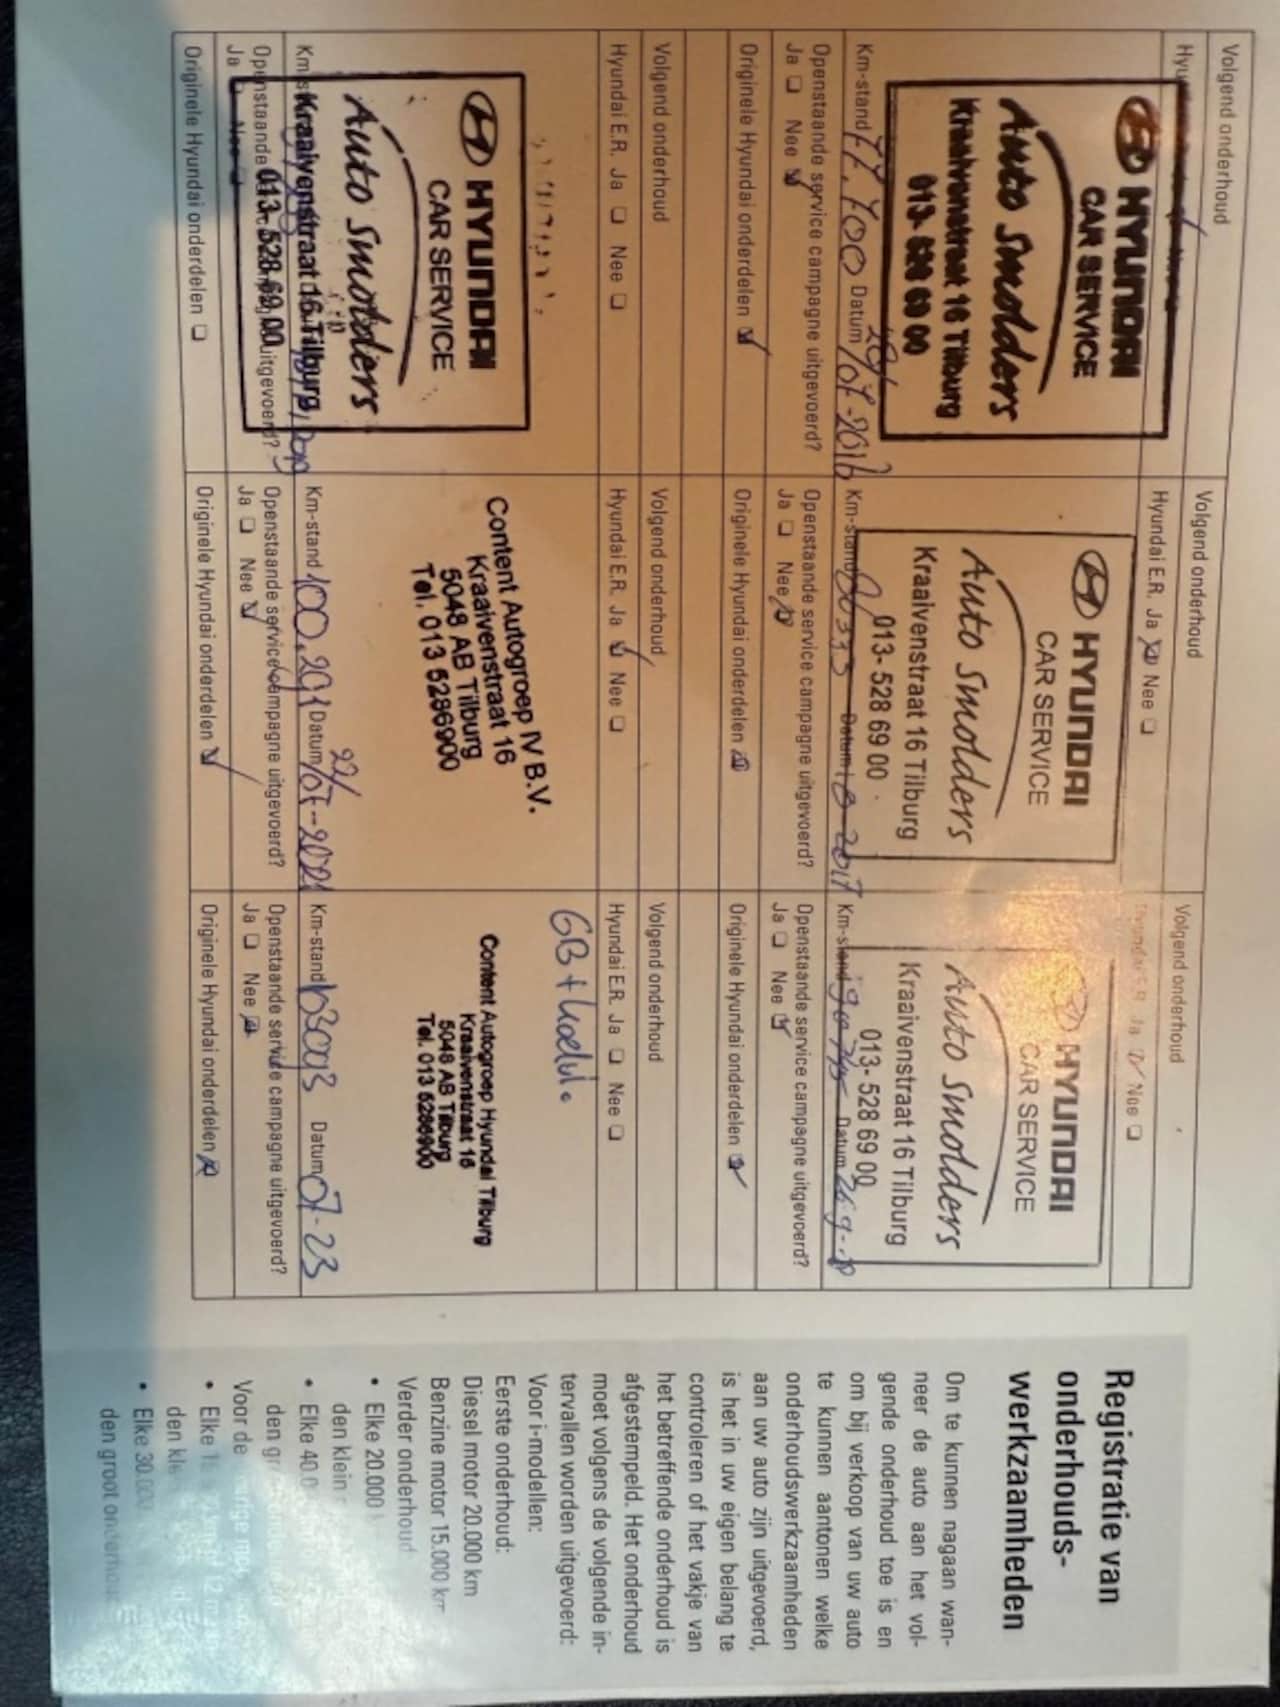 Volgend onderhoud
HYUNDAI
CAR SERVICE
Auto Smolders
Kraaivenstraat 16 Tilburg
013- 528 69 00
Km-stand 77.700 Datum 29/07-2016
Openstaande service campagne uitgevoerd?
Ja ❏ Nee ☑
Originele Hyundai onderdelen ☑
Volgend onderhoud
Hyundai E.R. Ja ❏ Nee ❏
HYUNDAI
CAR SERVICE
Auto Smolders
Kraaivenstraat 16 Tilburg
013- 528 69 00
Openstaande
uitgevoerd?
Ja ❏ Nee ❏
Originele Hyundai onderdelen ❏
Volgend onderhoud
Hyundai E.R. Ja ☑ Nee ❏
HYUNDAI
CAR SERVICE
Auto Smolders
Kraaivenstraat 16 Tilburg
013- 528 69 00
Km-stand Datum
Openstaande service campagne uitgevoerd?
Ja ❏ Nee ☑
Originele Hyundai onderdelen ☑
Volgend onderhoud
Hyundai E.R. Ja ☑ Nee ❏
Content Autogroep IV B.V.
Kraaivenstraat 16
5048 AB Tilburg
Tel. 013 5286900
Km-stand 100.201 Datum 22/07-2021
Openstaande service campagne uitgevoerd?
Ja ❏ Nee ☑
Originele Hyundai onderdelen ☑
Volgend onderhoud
Hyundai E.R. Ja ☑ Nee ❏
HYUNDAI
CAR SERVICE
Auto Smolders
Kraaivenstraat 16 Tilburg
013- 528 69 00
Km-stand Datum
Openstaande service campagne uitgevoerd?
Ja ❏ Nee ☑
Originele Hyundai onderdelen ☑
Volgend onderhoud
Hyundai E.R. Ja ❏ Nee ❏
GB + koelvl.
Content Autogroep Hyundai Tilburg
Kraaivenstraat 16
5048 AB Tilburg
Tel. 013 5286900
Km-stand Datum 07-23
Openstaande service campagne uitgevoerd?
Ja ❏ Nee ☑
Originele Hyundai onderdelen ☑
Registratie van
onderhouds-
werkzaamheden
Om te kunnen nagaan wan-
neer de auto aan het vol-
gende onderhoud toe is en
om bij verkoop van uw auto
te kunnen aantonen welke
onderhoudswerkzaamheden
aan uw auto zijn uitgevoerd,
is het in uw eigen belang te
controleren of het vakje van
het betreffende onderhoud is
afgestempeld. Het onderhoud
moet volgens de volgende in-
tervallen worden uitgevoerd:
Voor i-modellen:
Eerste onderhoud:
Diesel motor 20.000 km
Benzine motor 15.000 km
Verder onderhoud
• Elke 20.000
den klein
• Elke 40.0
den
Voor de
• Elke
den
• Elke 30.000
den groot onderhoud